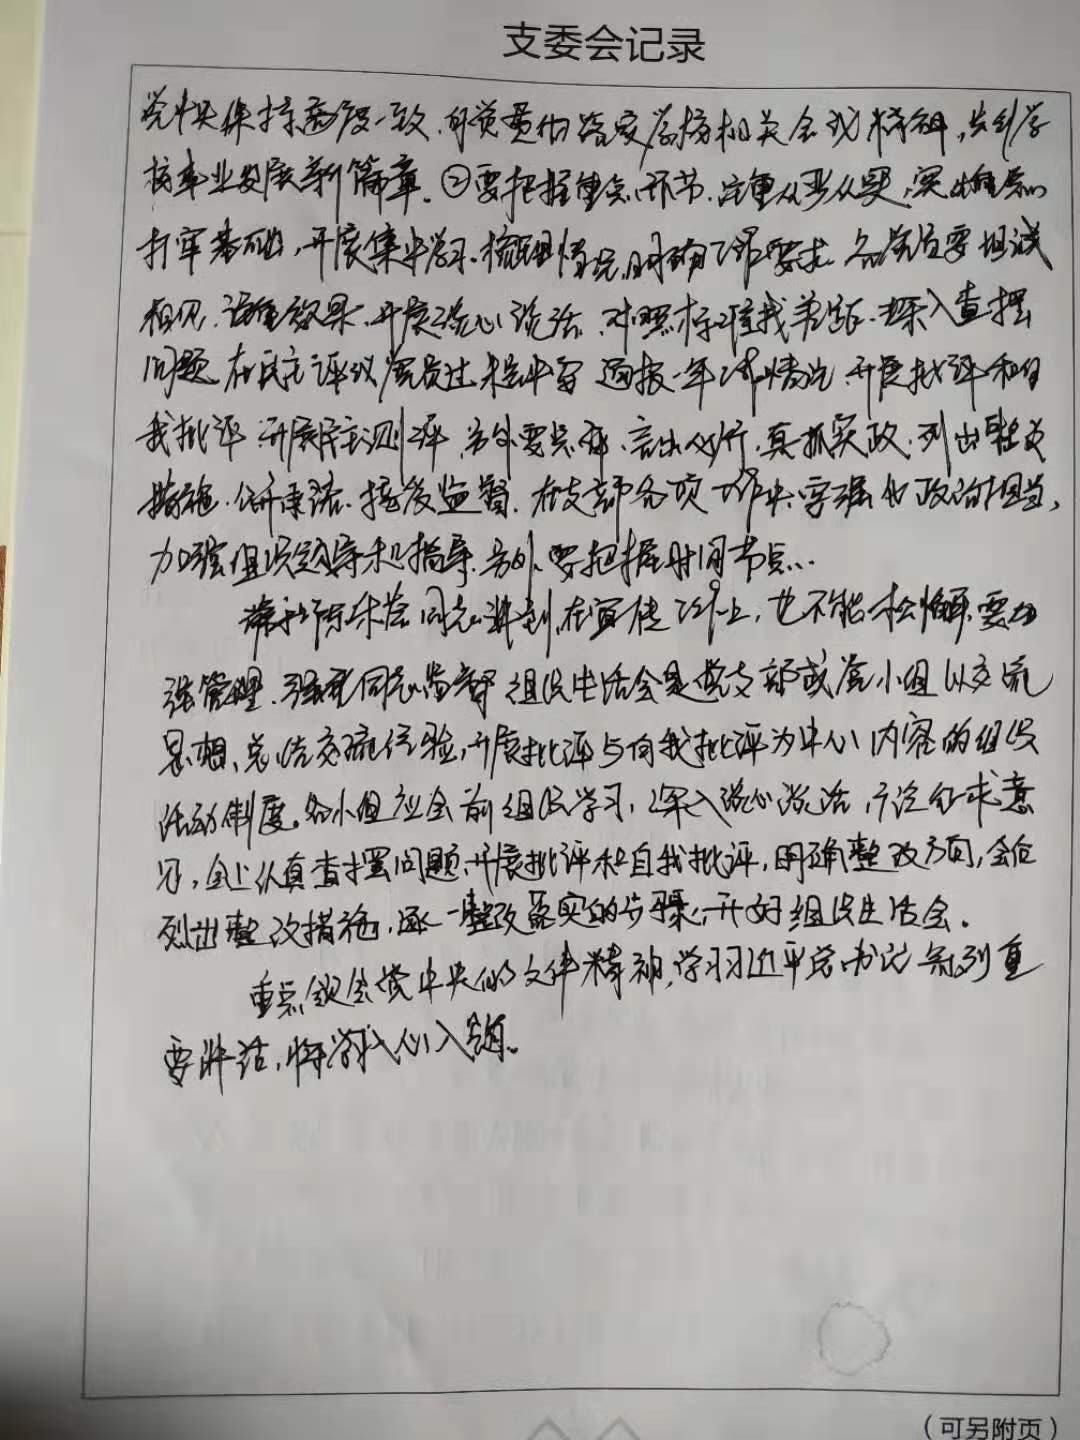 支委会记录
党中央保持高度一致，自觉贯彻落实学校相关会议精神，共创学
校事业发展新篇章。②要把握重点环节，注重从严从实，突出重点，
打牢基础，开展集中学习，梳理情况，明确工作要求，各党员要坦诚
相见，注重效果，开展谈心谈话，对照标准找差距，深入查摆
问题，在民主评议党员过程中，通报一年工作情况，开展批评和自
我批评，开展民主测评，另外要言出必行，真抓实改，列出整改
措施，作出承诺，接受监督，在支部各项工作中，要强化政治担当，
加强组织领导和指导，另外，要把握时间节点。
同志讲到，在宣传工作上，也不能松懈，要加
强管理，强化同志监督，组织生活会是党支部或党小组以交流
思想、总结交流经验，开展批评与自我批评为中心内容的组织
活动制度。各小组应会前组织学习，深入谈心谈话，广泛征求意
见，会上认真查摆问题，开展批评和自我批评，明确整改方向，会后
列出整改措施，逐一整改落实的步骤，开好组织生活会。
重点领会党中央的文件精神，学习习近平总书记系列重
要讲话，将学习入心入脑。
（可另附页）